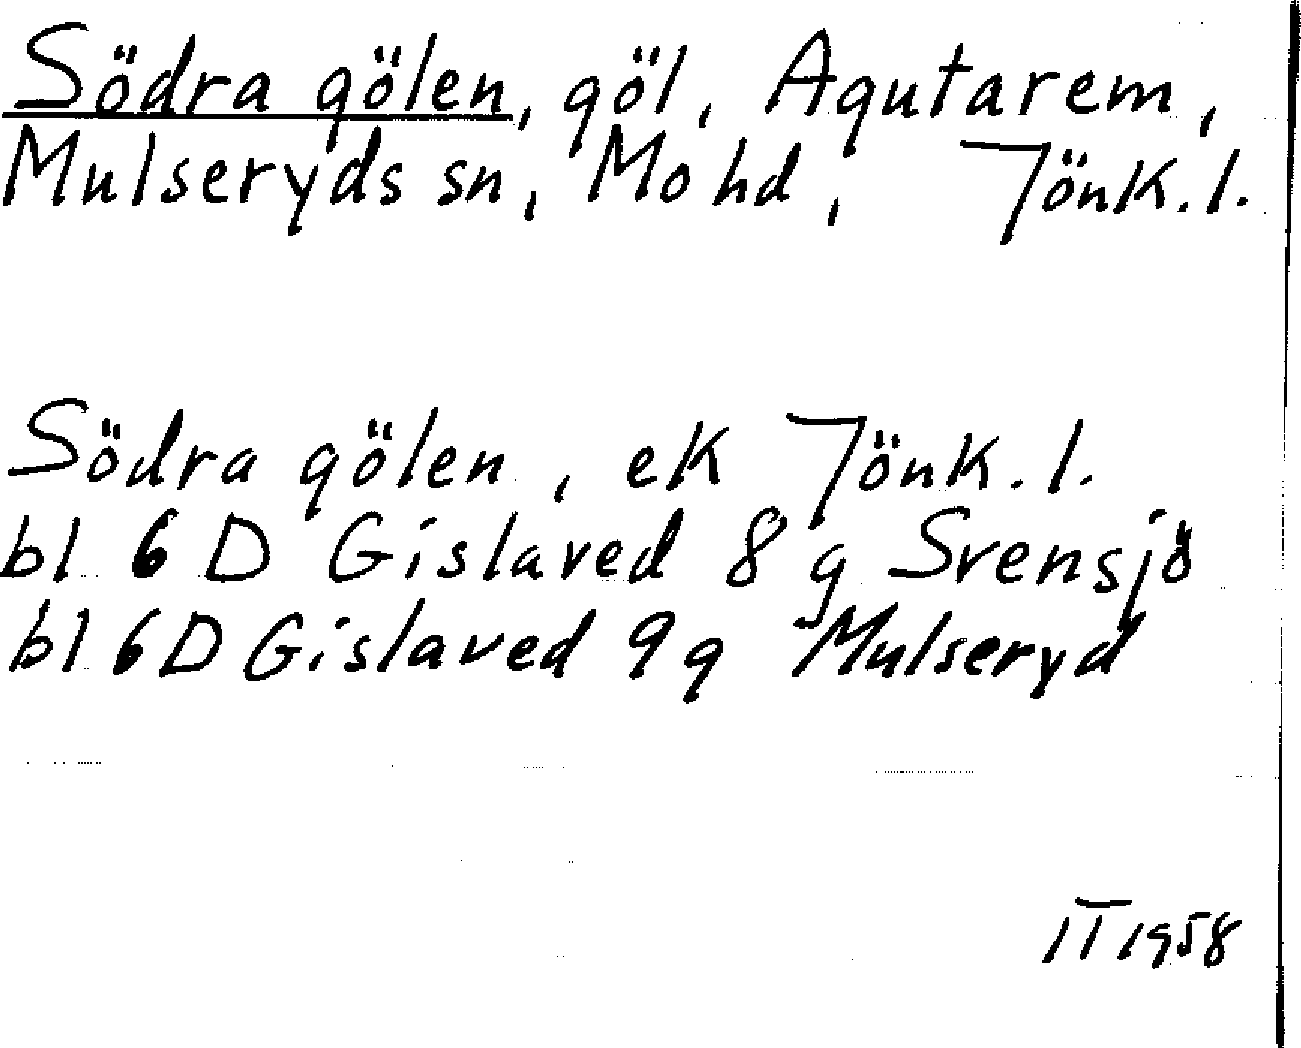 Södra gölen, göl, Agutarem,
Mulseryds sn, Mo hd, Jönk.l.
Södra gölen, ek Jönk.l.
bl 6D Gislaved 8g Svensjö
bl 6D Gislaved 9g Mulseryd
IT 1958